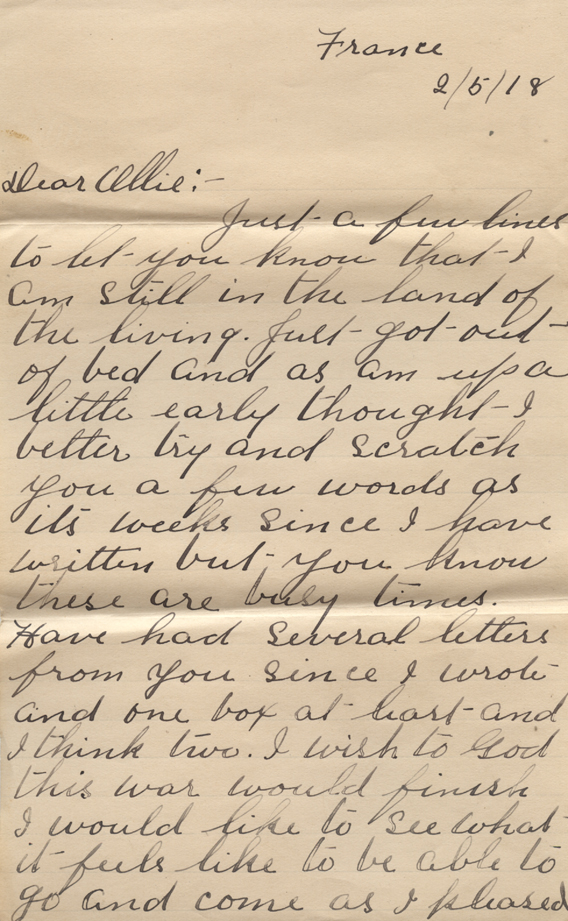 France
2/5/18
Dear Ollie:-
Just a few lines
to let you know that I
am still in the land of
the living. Just got out
of bed and as am up a
little early thought I
better try and scratch
you a few words as
its weeks since I have
written but you know
these are busy times.
Have had several letters
from you since I wrote
and one box at least and
I think two. I wish to God
this war would finish
I would like to see what
it feels like to be able to
go and come as I pleased